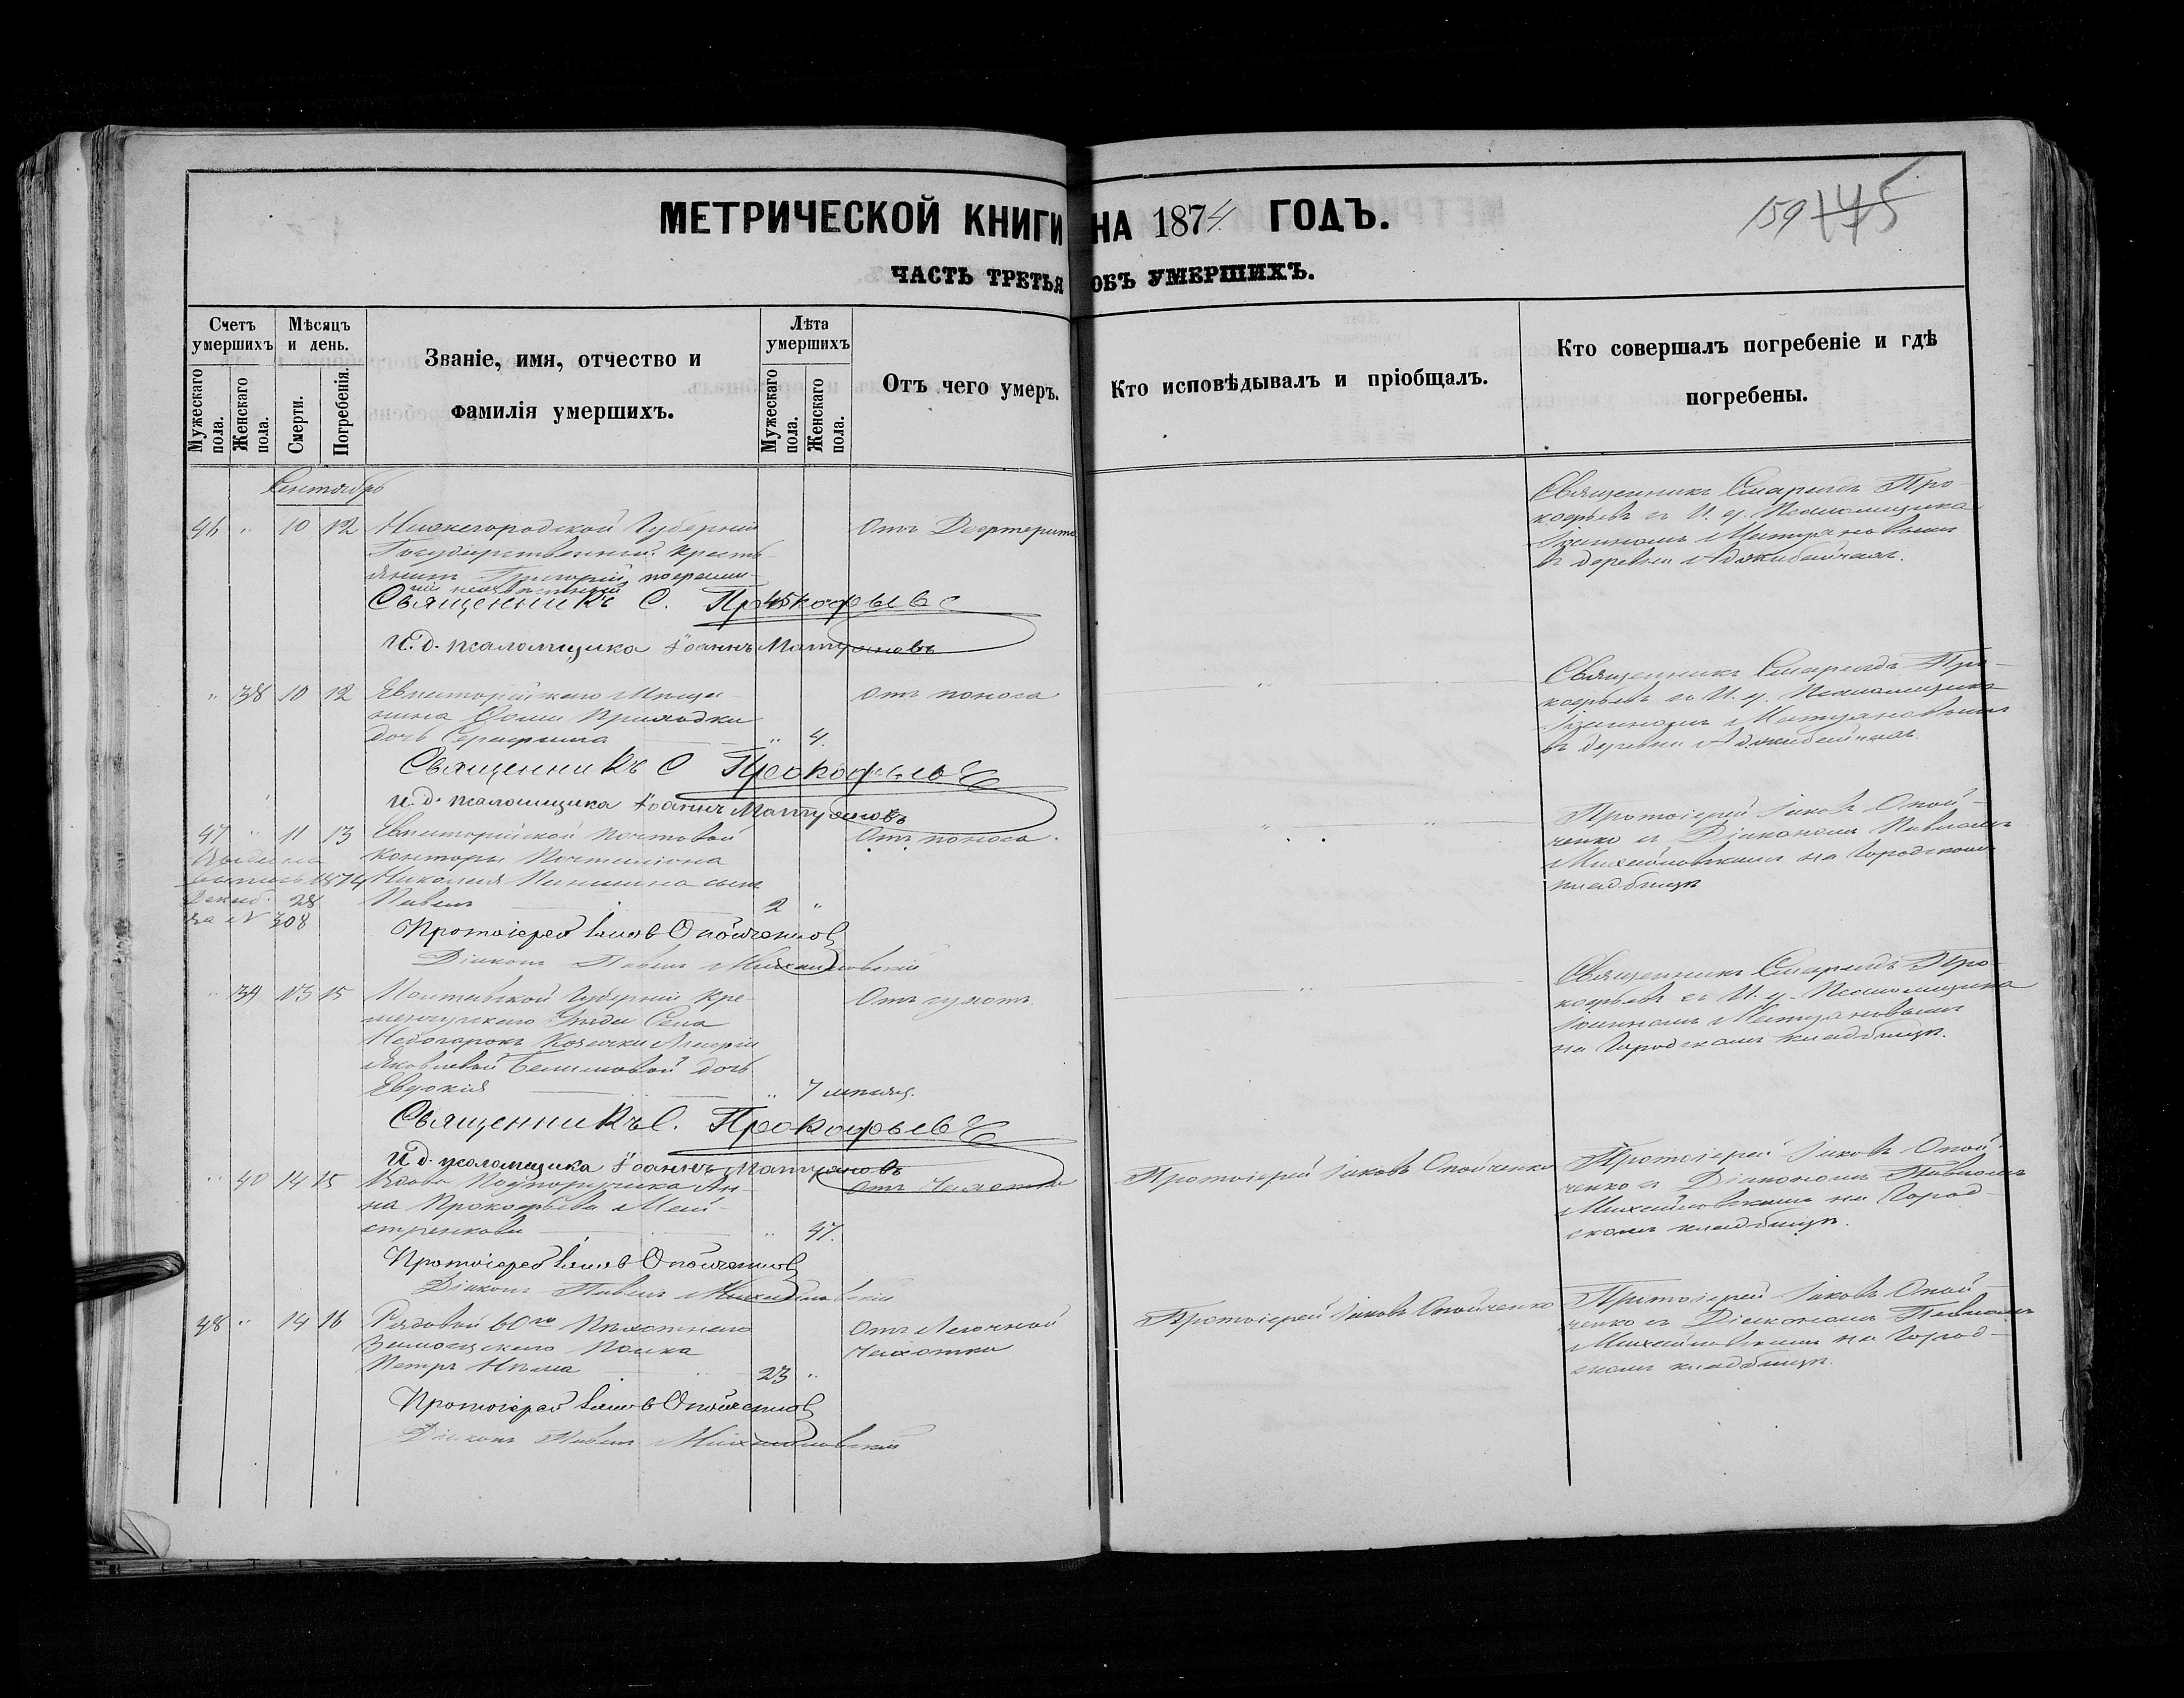 МЕТРИЧЕСКОЙ КНИГИ НА 1874 ГОДЪ.
159 145
ЧАСТЬ ТРЕТЬЯ ОБЪ УМЕРШИХЪ.
Счетъ умершихъ
Мужескаго пола.
Женскаго пола.
Мѣсяцъ и день.
Смерти.
Погребенія.
Званіе, имя, отчество и
фамилія умершихъ.
Лѣта умершихъ
Мужескаго пола.
Женскаго пола.
Отъ чего умеръ.
Кто исповѣдывалъ и пріобщалъ.
Кто совершалъ погребеніе и гдѣ
погребены.
Сентябрь
46 " 10 12 Нижегородской Губерніи
Государственный кресть-
янинъ Григорій
45
Отъ
Священникъ Про-
кофьевъ съ И. д. Псаломщика
Іоанномъ Матушновымъ
въ деревни Аджибайчахъ.
Священникъ С. Прокофьевъ
И. д. псаломщика Іоаннъ
" 38 10 12 Евпаторійскаго Мѣща-
нина Приходки
дочь Серафима " 4.
Отъ поноса
Священникъ Про-
кофьевъ съ И. д. Псаломщика
Іоанномъ
въ деревни Аджибайчахъ.
Священникъ С Прокофьевъ
И. д. псаломщика Іоаннъ
47 " 11 13 Евпаторійской Почтовой
конторы Почталіона
Николая сынъ
Павелъ 2 "
Отъ поноса.
Выдана
выпись 1874
Декаб. 28
за № 308
Протоіерей Іаковъ Опой-
ченко съ Діакономъ Павломъ
Михайловскимъ на Городскомъ
кладбищѣ
Протоіерей Іаковъ Опойченко
Діаконъ Павелъ Михайловскій
" 39 13 15 Полтавской Губерніи Кре-
менчугскаго Уѣзда Села
Недогарокъ Козачки
Яковлевой дочь
Евдокія " 7 мѣсяц.
Отъ сухотъ.
Священникъ Про-
кофьевъ съ И. д. Псаломщика
Іоанномъ
на Городскомъ кладбищѣ.
Священникъ С. Прокофьевъ
И. д. псаломщика Іоаннъ
" 40 14 15 Вдова Подпоручика Ан-
на Прокофьева
" 47.
Отъ Чахотки
Протоіерей Іаковъ Опойченко
Протоіерей Іаковъ Опой-
ченко съ Діакономъ Павломъ
Михайловскимъ на Город-
скомъ кладбищѣ.
Протоіерей Іаковъ Опойченко
Діаконъ Павелъ Михайловскій
48 " 14 16 Рядовой 60го Пѣхотнаго
Замосцкаго Полка
Петръ 23 "
Отъ Легочной
Чахотки
Протоіерей Іаковъ Опойченко
Протоіерей Іаковъ Опой-
ченко съ Діакономъ Павломъ
Михайловскимъ на Город-
скомъ кладбищѣ.
Протоіерей Іаковъ Опойченко
Діаконъ Павелъ Михайловскій